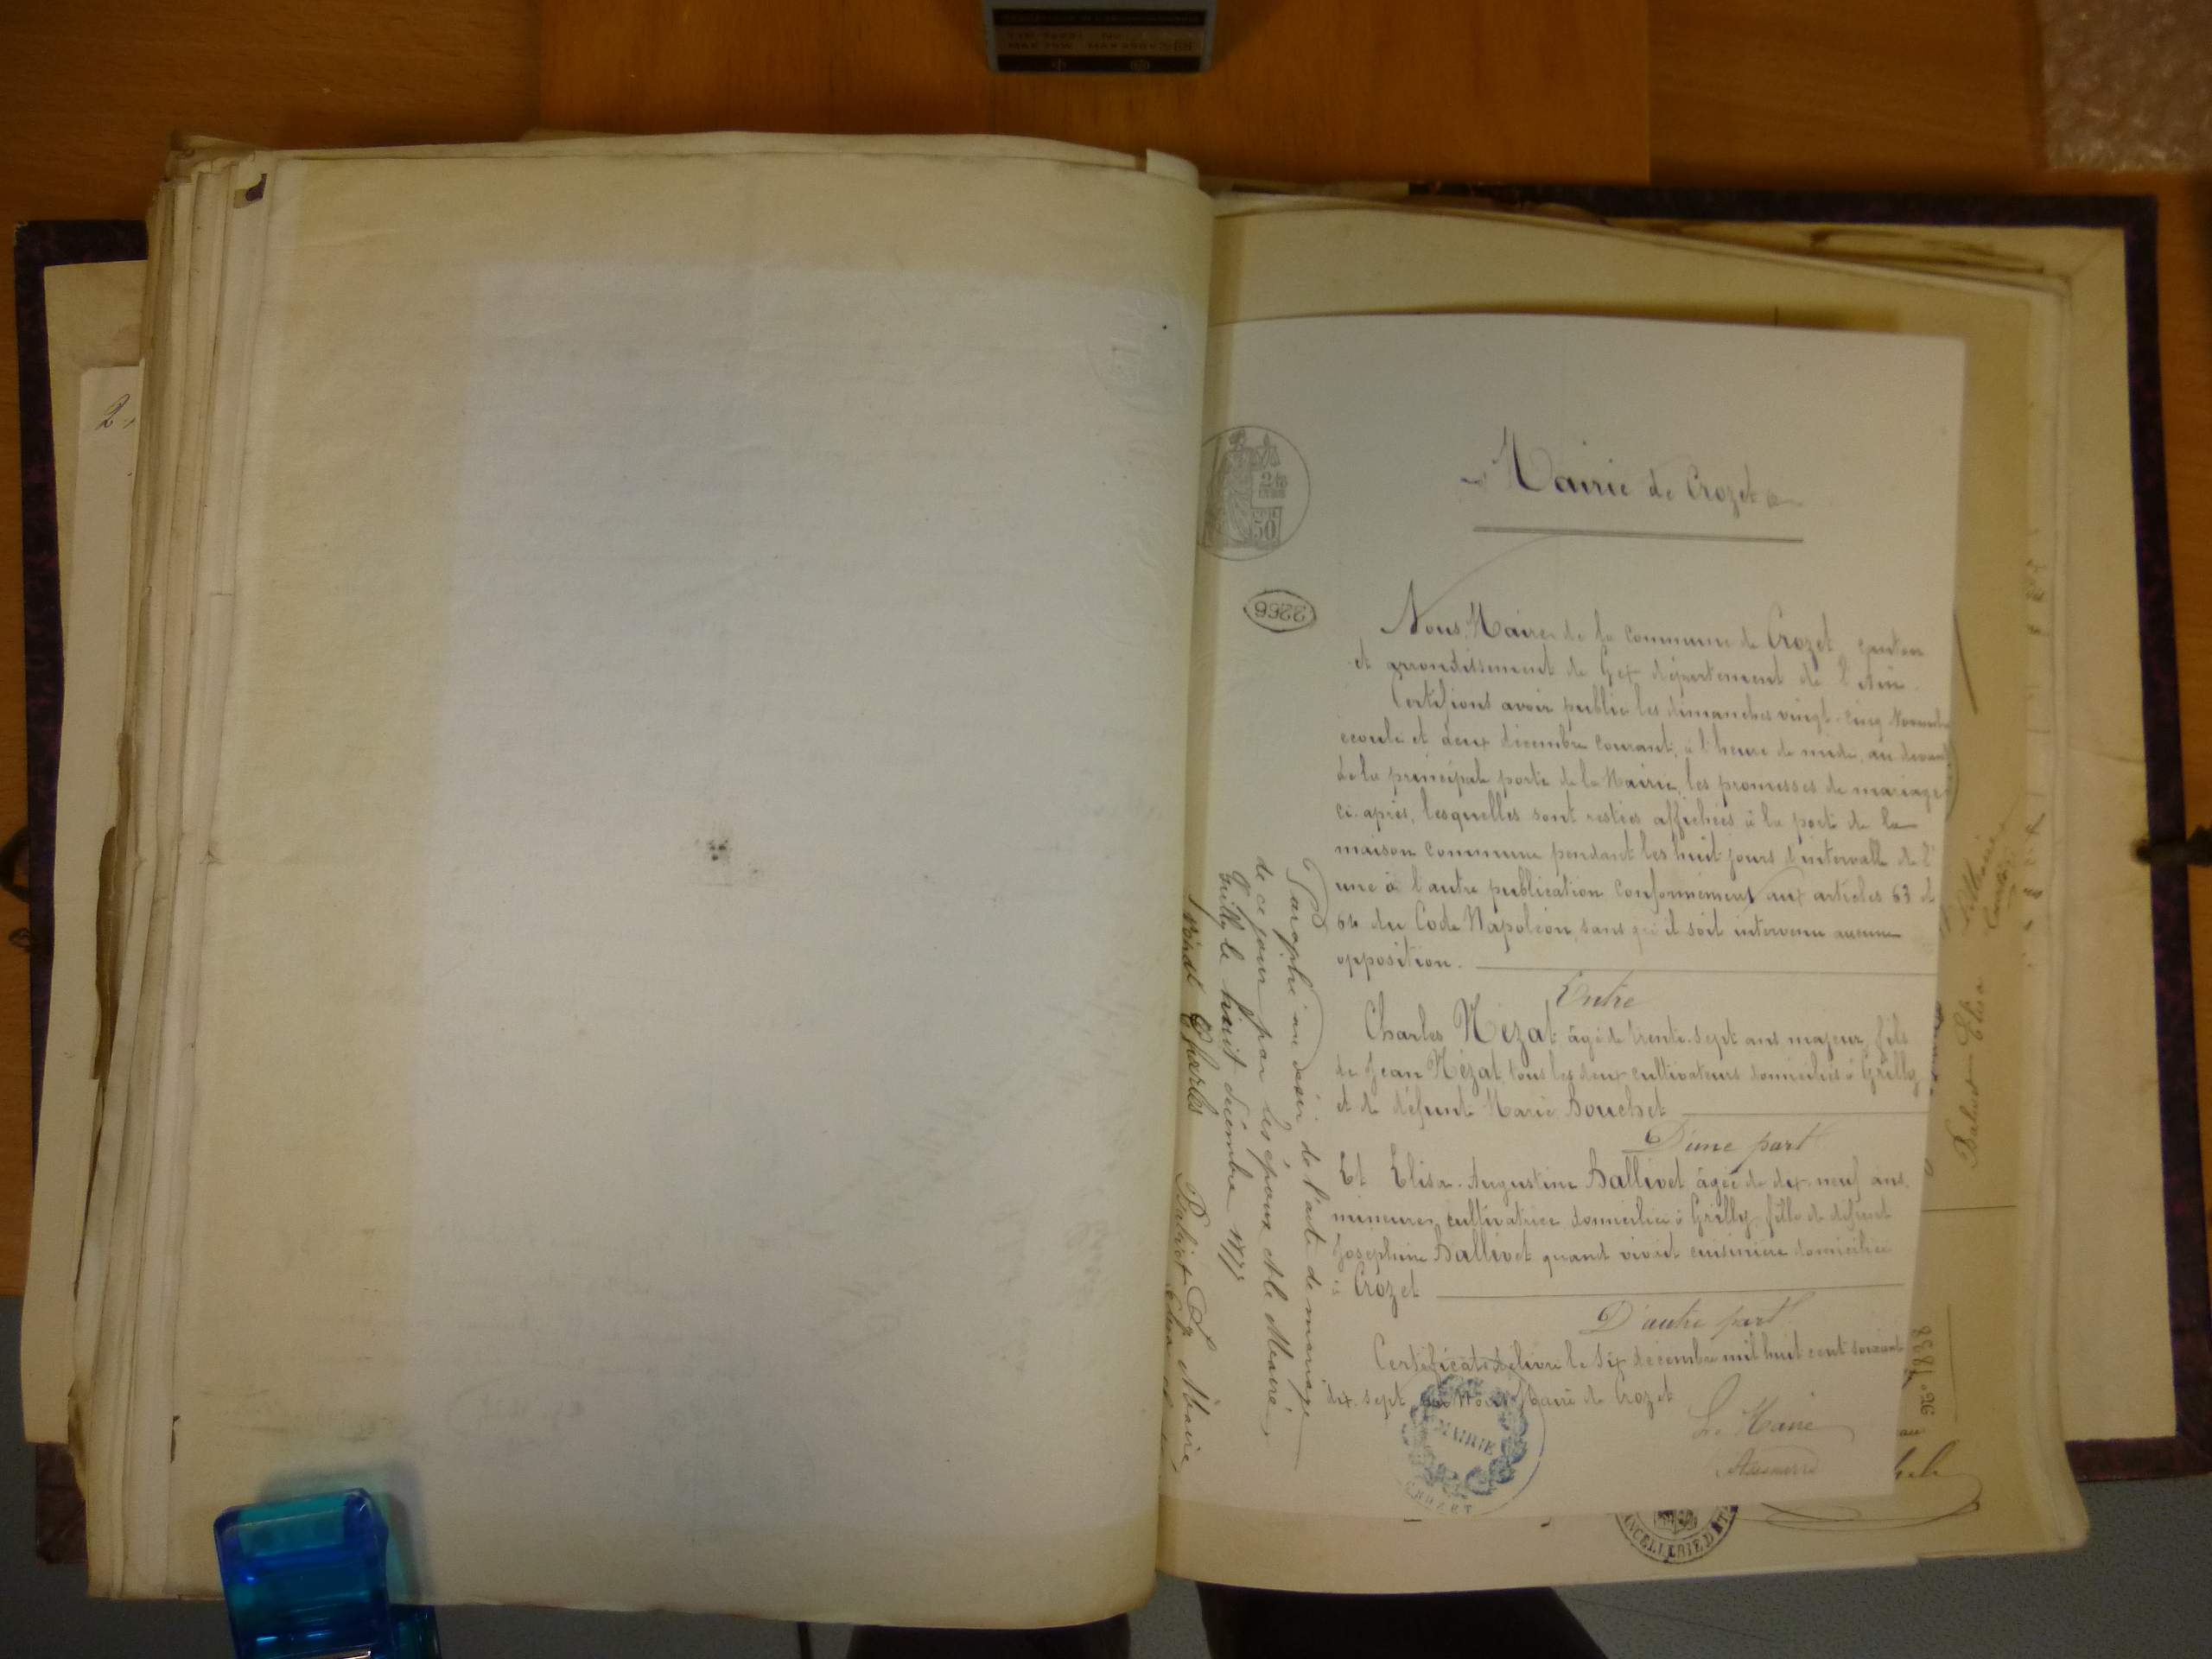 Mairie de Crozet
2 50
2266
Nous, Maire de la commune de Crozet, canton
et arrondissement de Gex département de l'Ain
Certifions avoir publié les dimanches vingt-cinq Novembre
ecoulé et deux décembre courant, à l'heure de midi, au devant
de la principale porte de la Mairie, les promesses de mariage
ci-après, lesquelles sont restées affichées à la porte de la
maison commune pendant les huit jours d'intervalle de l'
une à l'autre publication conformément aux articles 63 et
64 du Code Napoléon, sans qu'il soit intervenu aucune
opposition.
Entre
Charles Nézat âgé de trente-sept ans majeur, fils
de Jean Nézat, tous les deux cultivateurs domiciliés à Grilly
et de défunte Marie Bouchet
D'une part
Et Elisa-Augustine Ballivet, âgée de dix-neuf ans,
mineure, cultivatrice domiciliée à Grilly, fille de défunte
Joséphine Ballivet quand vivait cuisinière domiciliée
à Crozet
D'autre part
Certificat délivré le six decembre mil huit cent soixante
dix-sept par Nous Maire de Crozet
Le Maire
MAIRIE
Paraphé au désir de l'acte de mariage
de ce jour par les époux et le Maire
Grilly le huit décembre 1877
Charles
Balivet Elisa
Le Maire,
Balivet Elisa
No 1838
au